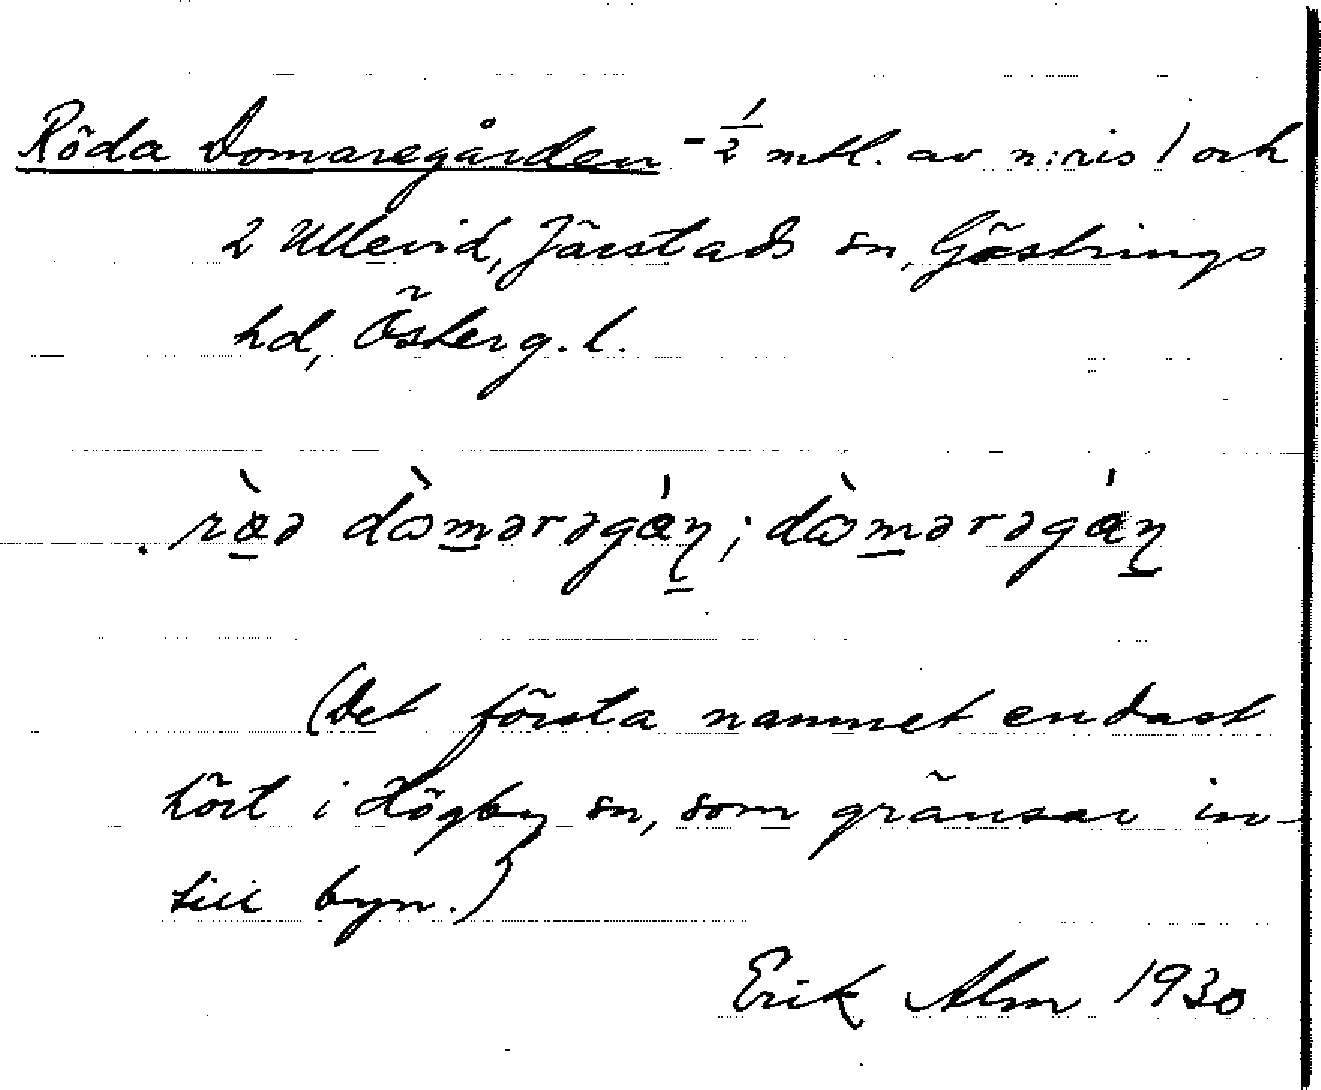 Röda Domaregården - 1/2 mtl. av n:ris 1 och
2 Ullevid, Järstads sn, Göstrings
hd, Österg. l.
(Det första namnet endast
hört i Högby sn, som gränsar in-
till byn.)
Erik Alm 1930